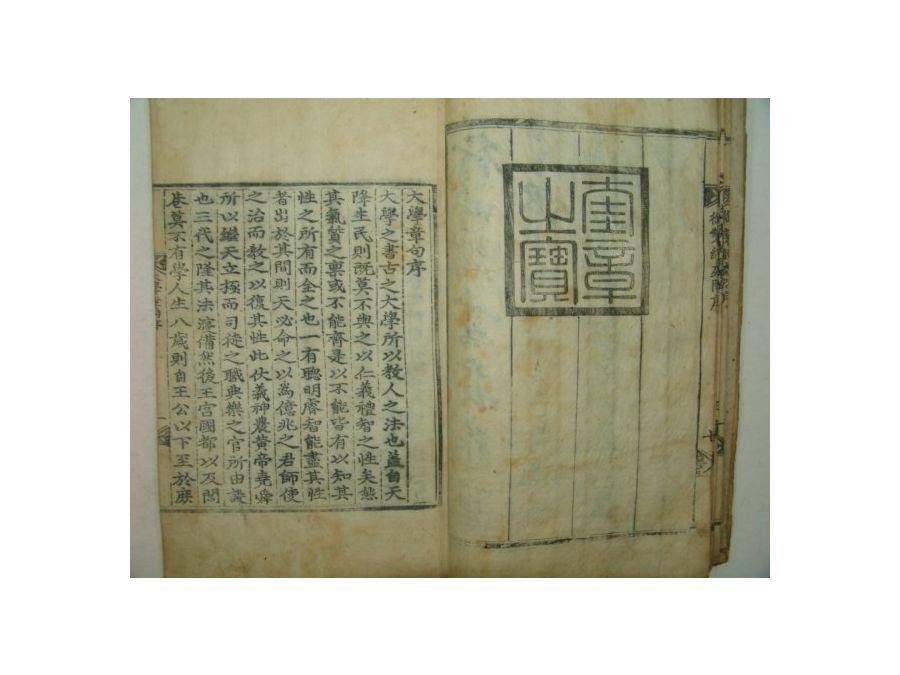 奎章
之寶
大學章句序
大學之書古之大學所以教人之法也蓋自天
降生民則既莫不與之以仁義禮智之性矣然
其氣質之稟或不能齊是以不能皆有以知其
性之所有而全之也一有聰明睿智能盡其性
者出於其間則天必命之以爲億兆之君師使
之治而教之以復其性此伏羲神農黃帝堯舜
所以繼天立極而司徒之職典樂之官所由設
也三代之隆其法寖備然後王宮國都以及閭
巷莫不有學人生八歲則自王公以下至於庶